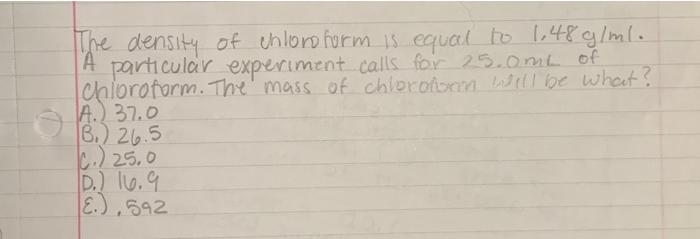 The density of chloroform is equal to 1.48 g/ml.
A particular experiment calls for 25.0mL of
chloroform. The mass of chloroform will be what?
A.) 37.0
B.) 26.5
C.) 25.0
D.) 16.9
E.) .592